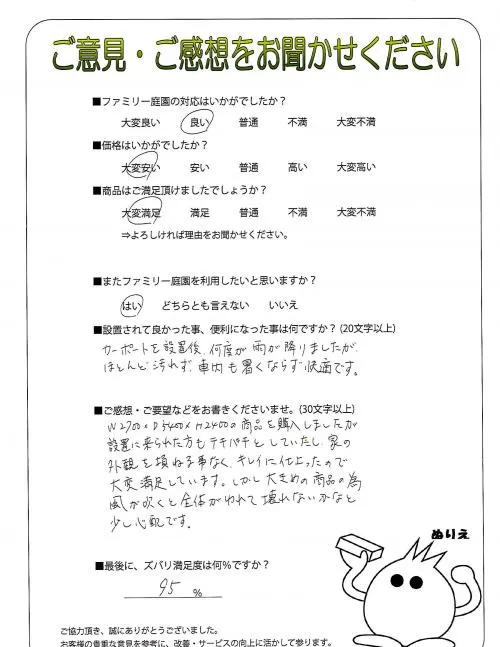 ご意見・ご感想をお聞かせください
■ファミリー庭園の対応はいかがでしたか？
大変良い 良い 普通 不満 大変不満
■価格はいかがでしたか？
大変安い 安い 普通 高い 大変高い
■商品はご満足頂けましたでしょうか？
大変満足 満足 普通 不満 大変不満
⇒よろしければ理由をお聞かせください。
■またファミリー庭園を利用したいと思いますか？
はい どちらとも言えない いいえ
■設置されて良かった事、便利になった事は何ですか？(20文字以上)
カーポートを設置後、何度か雨が降りましたが、
ほとんど汚れず、車内も暑くならず快適です。
■ご感想・ご要望などをお書きくださいませ。(30文字以上)
W2700×D5400×H2400の商品を購入しましたが
設置に来られた方もテキパキとしていたし、家の
外観を損ねる事なく、キレイに仕上ったので
大変満足しています。しかし大きめの商品の為
風が吹くと全体がゆれて壊れないかなと
少し心配です。
ぬりえ
■最後に、ズバリ満足度は何%ですか？
95 %
ご協力頂き、誠にありがとうございました。
お客様の貴重な意見を参考に、改善・サービスの向上に活かして参ります。